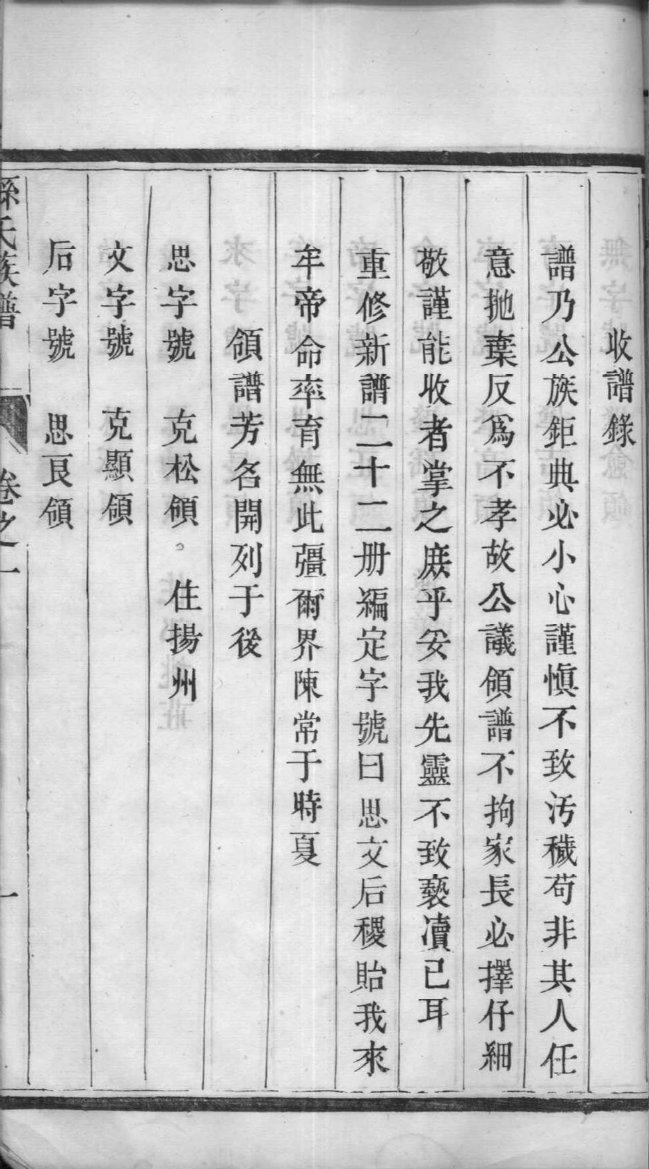 收譜錄
譜乃公族鉅典必小心謹慎不致汚穢苟非其人任
意拋棄反爲不孝故公議領譜不拘家長必擇仔細
敬謹能收者掌之庶乎妥我先靈不致褻凟已耳
重修新譜二十二册編定字號曰思文后稷貽我來
牟帝命率育無此疆爾界陳常于時夏
領譜芳名開列于後
思字號 克松領。住揚州
文字號 克顯領
后字號 思良領
孫氏族譜 卷之一 一